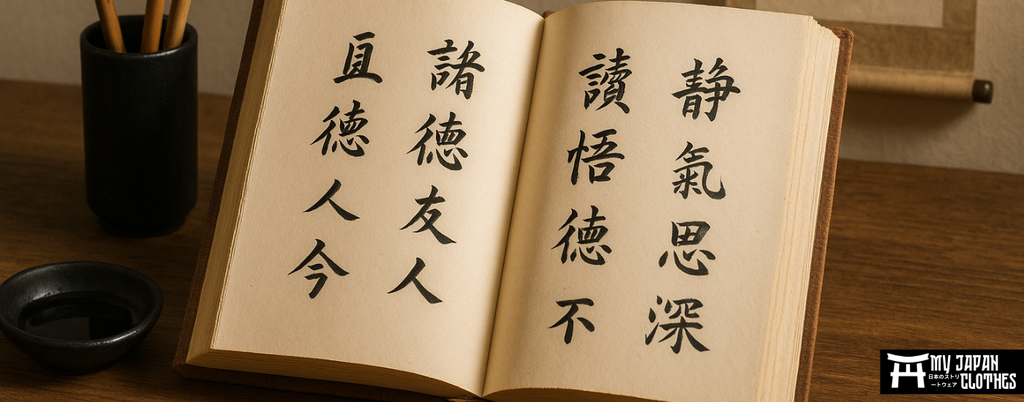 静氣思深
讀悟徳不
諸徳友人
徳人今
MY JAPAN
日本のストリ
ートウェア
CLOTHES